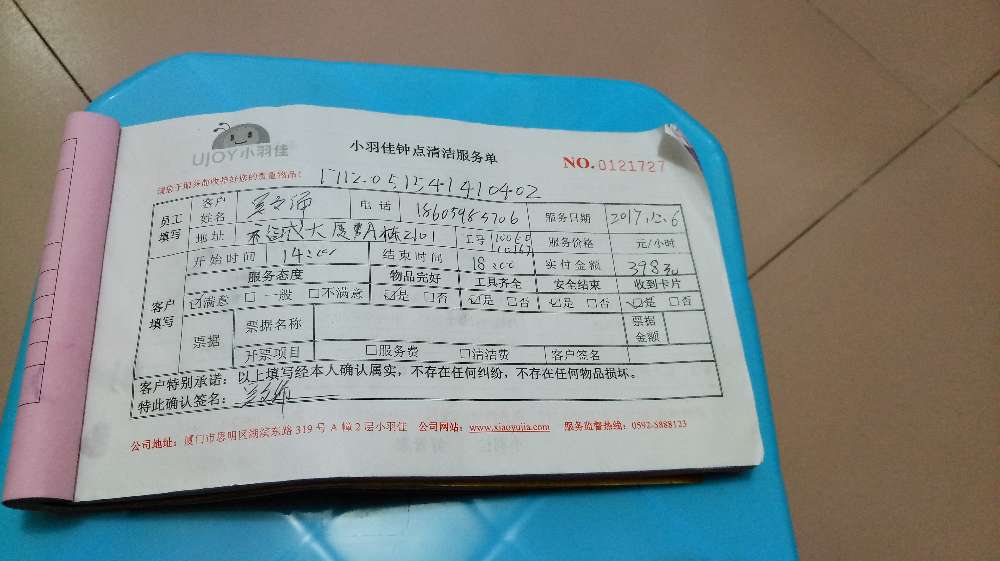 UJOY小羽佳
小羽佳钟点清洁服务单
NO.0121727
1712.05,1541410402
员工填写 客户姓名 电话 18605985706 服务日期 2017.12.6
地址 大厦A栋2101 工号 服务价格 元/小时
开始时间 14:00 结束时间 18:00 实付金额 398
客户填写 服务态度 物品完好 工具齐全 安全结束 收到卡片
☑满意 □一般 □不满意 ☑是 □否 ☑是 □否 ☑是 □否 ☑是 □否
票据 票据名称 票据金额
开票项目 □服务费 □清洁费 客户签名
客户特别承诺：以上填写经本人确认属实，不存在任何纠纷，不存在任何物品损坏。
特此确认签名：
公司地址：厦门市思明区湖滨东路319号A幢2层小羽佳 公司网站：www.xiaoyujia.com 服务监督热线：0592-5888123